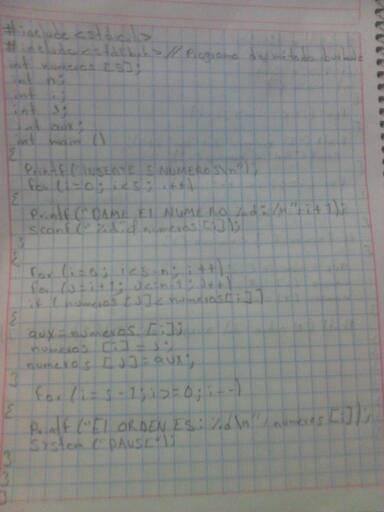 #include <stdio.h>
#include <stdlib.h> // Programa de metodo burbuja
int numeros [5];
int n;
int i;
int j;
int aux;
int main ()
{
Printf ("INSERTE 5 NUMEROS\n");
for (i=0; i<5; i++)
{
Printf ("DAME El NUMERO %d: /n", i+1);
scanf ("%d, d numeros [i]);
}
{
for (i=0; i<5-n; i++)
for (J=i+1; J<n-1; J++)
if ( numeros [J] < numeros [i]]
{
aux = numeros [i];
numeros [i] = J;
numeros [J] = aux;
}
for (i=5-1; i>=0; i--)
{
Printf ("El ORDEN ES: %d\n", numeros [i]);
System ("PAUSE");
}
}
}